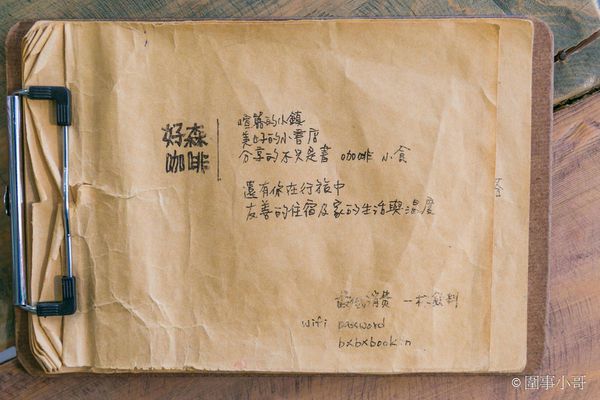 好森
咖啡
喧囂的小鎮
美好的小書店
分享的不只是書 咖啡 小食
還有你在行旅中
友善的住宿及家的生活與溫度
最低消費 一杯飲料
wifi password
bxbxbook.n
©圍事小哥